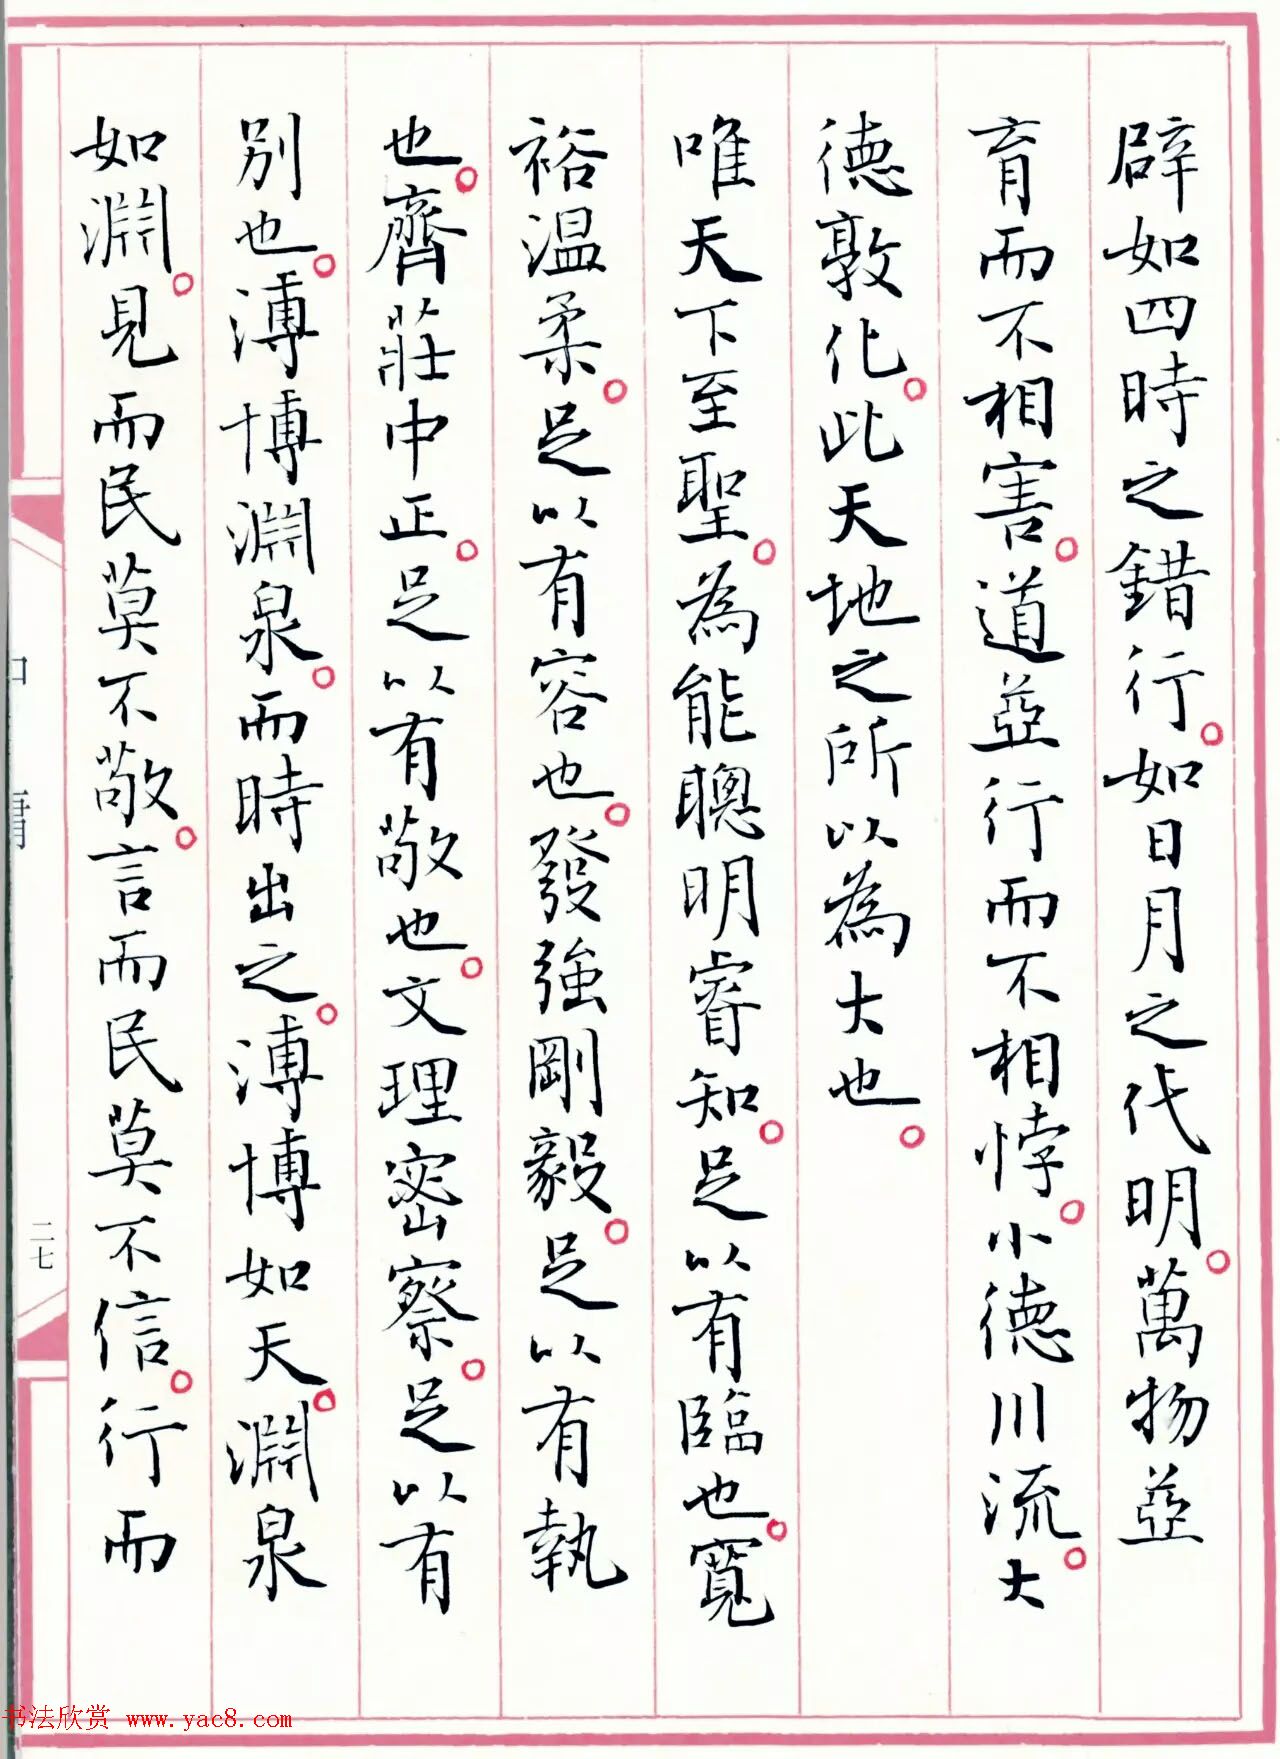 辟如四時之錯行。如日月之代明。萬物並
育而不相害。道並行而不相悖。小德川流。大
德敦化。此天地之所以為大也。
唯天下至聖。為能聰明睿知。足以有臨也。寬
裕温柔。足以有容也。發強剛毅。足以有執
也。齊莊中正。足以有敬也。文理密察。足以有
別也。溥博淵泉。而時出之。溥博如天。淵泉
如淵。見而民莫不敬。言而民莫不信。行而
中庸
二七
书法欣赏 www.yac8.com